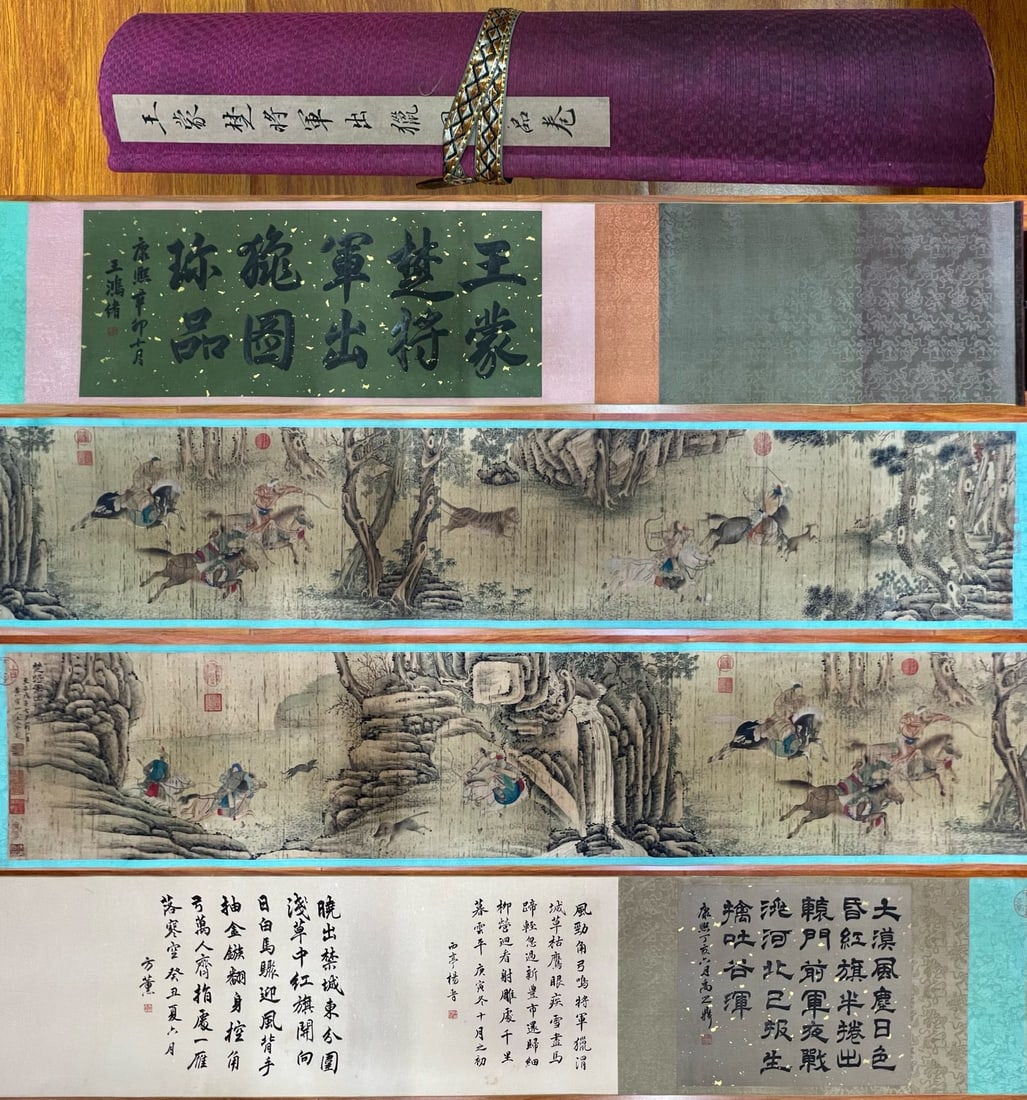 王蒙楚将軍出獵
品卷
王蒙
楚将
軍出
狁圖
珎品
康熙辛卯十月
王鴻緒
大漠風塵日色
昏紅旗半捲出
轅門前軍夜戰
洮河北已報生
擒吐谷渾
康熙丁亥六月高之鼎
風勁角弓鳴將軍獵渭
城草枯鷹眼疾雪盡馬
蹄輕忽過新豐市還歸細
柳營迴看射雕處千里
暮雲平 庚寅冬十月之初
西亭楊晉
曉出禁城東分圍
淺草中紅旗開向
日白馬驟迎風背手
抽金鏃翻身控角
弓萬人齊指處一雁
落寒空 癸丑夏六月
方薰